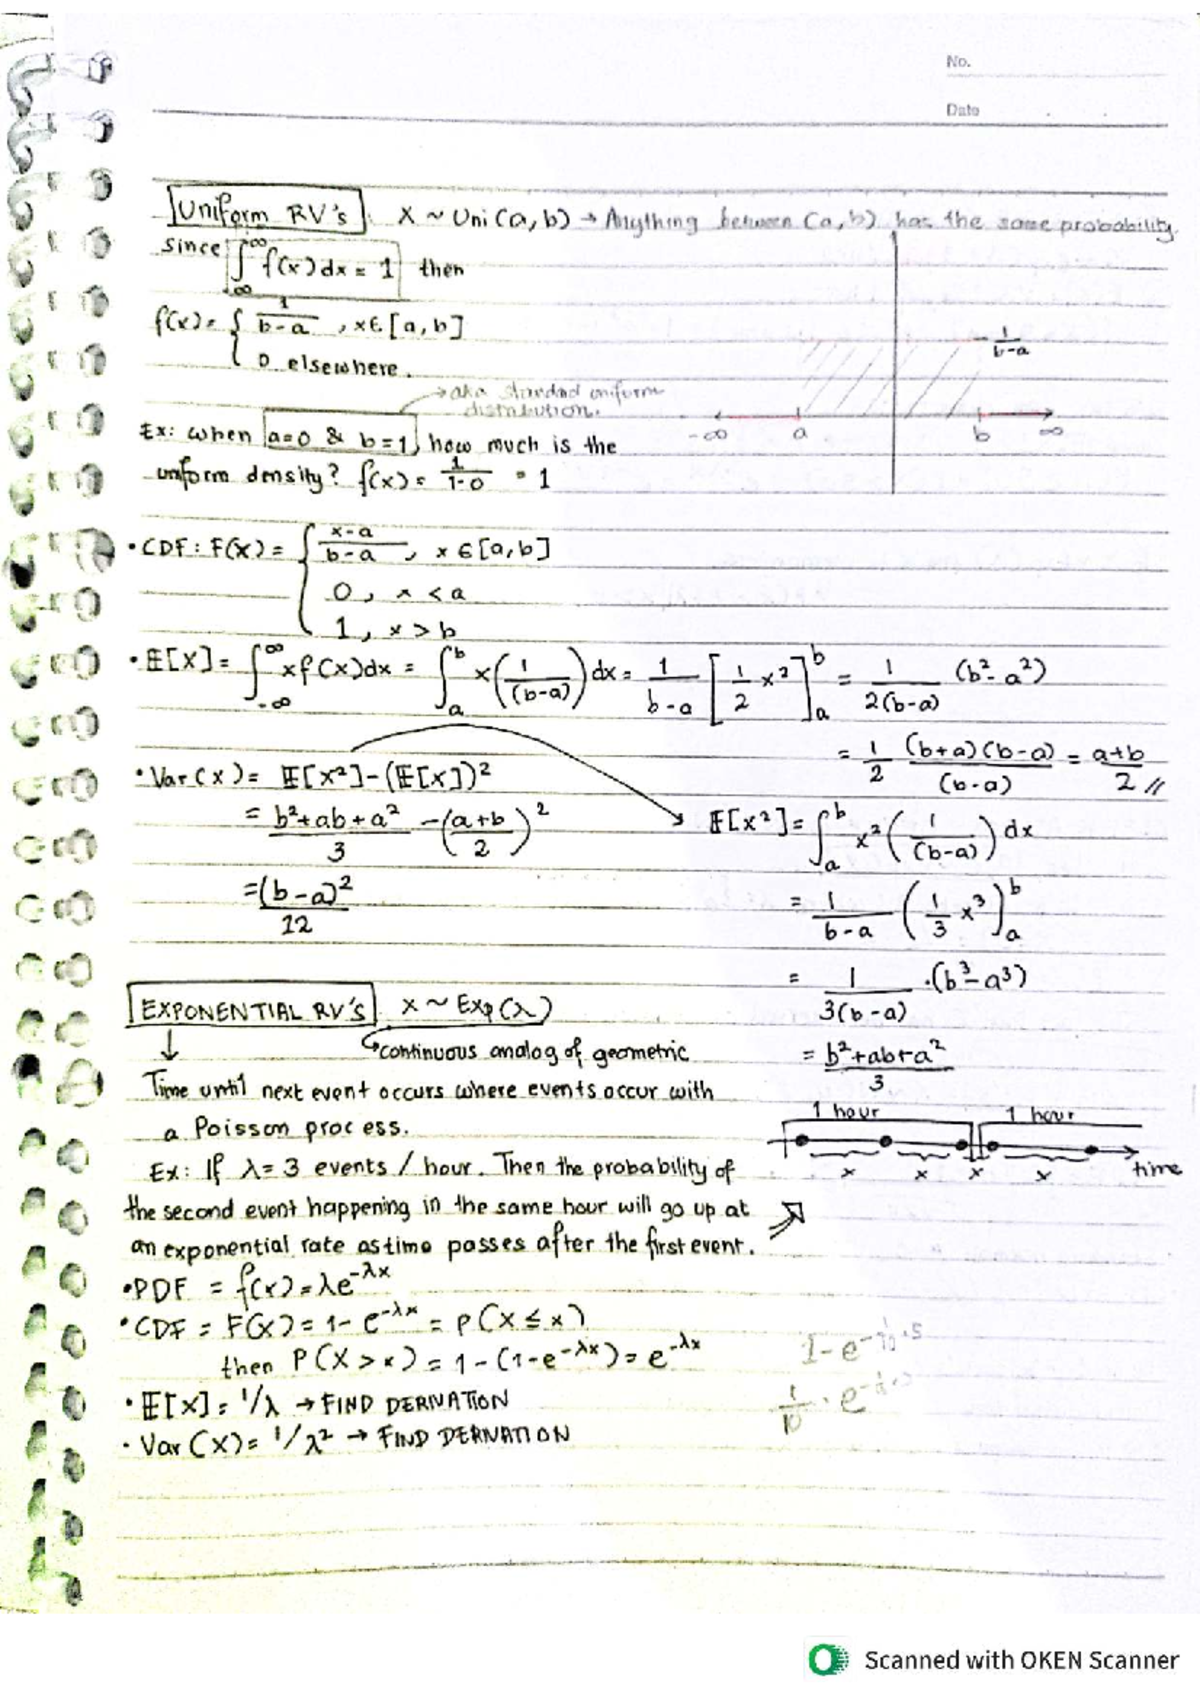 No.
Date
Uniform RV's : X ~ Uni(a,b) → Anything between (a,b) has the same probability.
since ∫_{-∞}^{∞} f(x)dx = 1 then
f(x) = { 1/(b-a) , x∈[a,b]
0 elsewhere.
1/(b-a)
→ aka standard uniform distribution.
-∞ a b ∞
Ex: when a=0 & b=1, how much is the
uniform density? f(x) = 1/(1-0) = 1
• CDF: F(x) = { (x-a)/(b-a) , x∈[a,b]
0, x<a
1, x>b
• E[X] = ∫_{-∞}^{∞} xf(x)dx = ∫_a^b x(1/(b-a))dx = 1/(b-a) [1/2 x²]_a^b = 1/(2(b-a)) (b²-a²)
= 1/2 (b+a)(b-a)/(b-a) = (a+b)/2 //
• Var(x) = E[X²]-(E[X])²
= (b²+ab+a²)/3 - ((a+b)/2)²
= (b-a)²/12
E[X²] = ∫_a^b x²(1/(b-a))dx
= 1/(b-a) (1/3 x³)_a^b
= 1/(3(b-a)) ·(b³-a³)
= (b²+ab+a²)/3
EXPONENTIAL RV'S X ~ Exp(λ)
↓ ↳ continuous analog of geometric
Time until next event occurs where events occur with
a Poisson process.
1 hour 1 hour
x x x x time
Ex: If λ=3 events / hour. Then the probability of
the second event happening in the same hour will go up at
an exponential rate as time passes after the first event.
• PDF = f(x) = λe^{-λx}
• CDF = F(x) = 1-e^{-λx} = P(X≤x)
then P(X>x) = 1-(1-e^{-λx}) = e^{-λx}
• E[X] = 1/λ → FIND DERIVATION
• Var(X) = 1/λ² → FIND DERIVATION
Scanned with OKEN Scanner